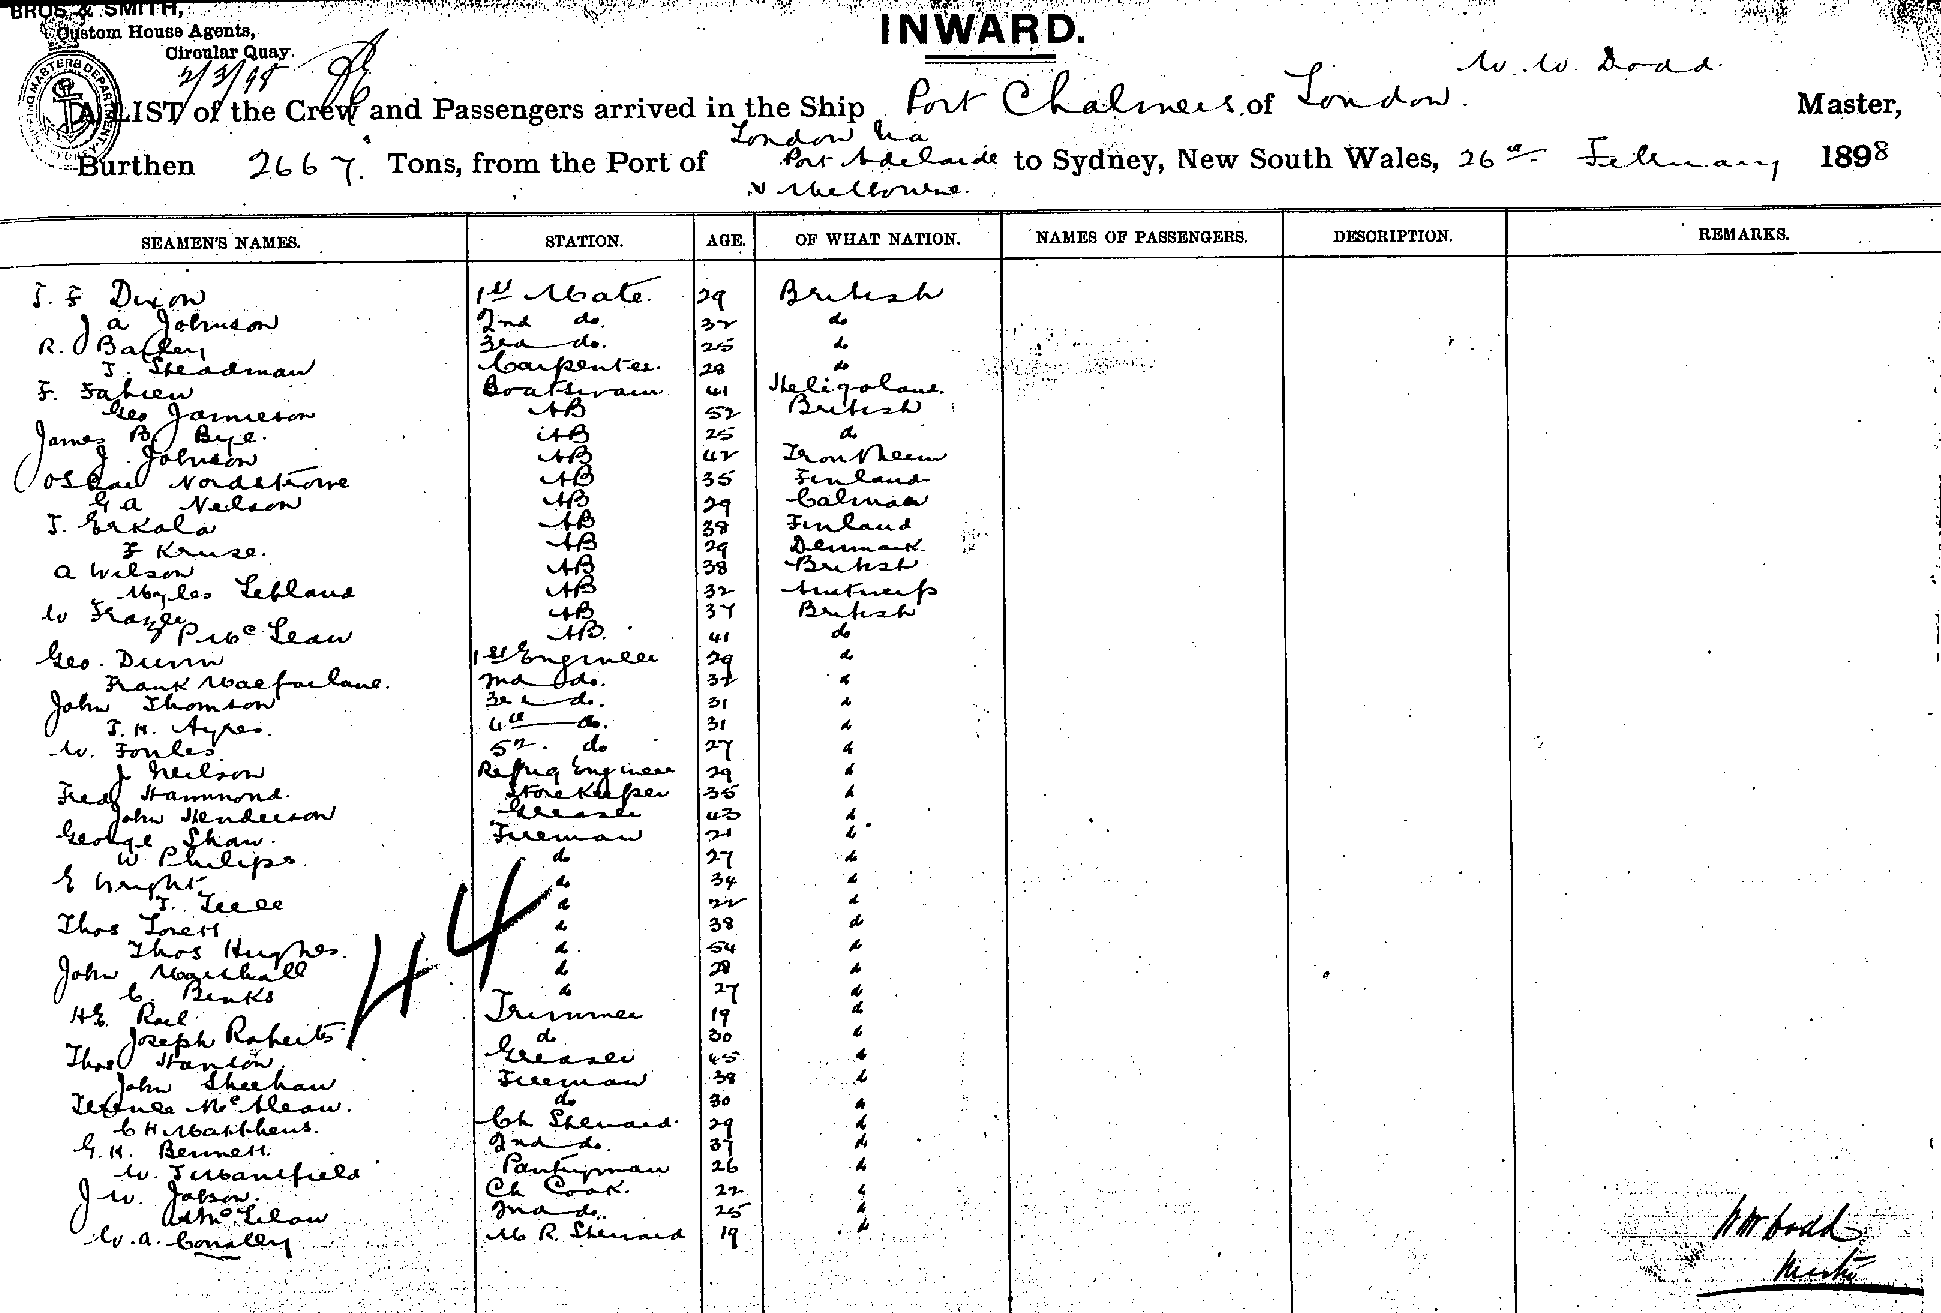 BROS. & SMITH,
Custom House Agents,
Circular Quay.
2/3/98
INWARD.
W. W. Dodd
A LIST of the Crew and Passengers arrived in the Ship Port Chalmers of London. Master,
London via
Burthen 2667 Tons, from the Port of Port Adelaide to Sydney, New South Wales, 26th February 1898
& Melbourne.
SEAMEN'S NAMES. STATION. AGE. OF WHAT NATION. NAMES OF PASSENGERS. DESCRIPTION. REMARKS.
T. F Dixon 1st Mate. 29 British
J a Johnson 2nd do. 32 do
R. Bailey 3rd do. 25 do
T. Steadman Carpenter. 28 do
F. Fabien Boatswain 41 Heligoland.
Geo Jamieson AB 52 British
James B Bye. AB 25 do
J Johnson AB 42 Trontheem
Oskar Nordstrome AB 35 Finland
G a Nelson AB 29 Calmar
T. Erkala AB 38 Finland
F Kruse. AB 29 Denmark
a Wilson AB 38 British
Myles Lebland AB 32 Antwerp
W Frazer AB 37 British
P McLean AB. 41 do
Geo. Dunn 1st Engineer 29 do
Frank Macfarlane. 2nd do. 32 do
John Thomson 3rd do. 31 do
T. H. Ayres. 4th do. 31 do
W. Foules 5th do 27 do
J Neilson Refrig Engineer 29 do
Fred Hammond. Storekeeper 35 do
John Henderson Greaser 43 do
George Shaw. Fireman 21 do
W Philips. do 27 do
E Wright do 34 do
T. do 22 do
Thos Lovett do 38 do
Thos Hughes. do 54 do
John Marshall do 28 do
C. Binks do 27 do
HE. Trimmer 19 do
Joseph Roberts do 30 do
Thos Hanlon Greaser 45 do
John Sheehan Fireman 38 do
Terence McAleavey. do 30 do
C H Matthews. Ch Steward. 29 do
G. H. Bennett. 2nd do. 37 do
W. T Mansfield Pantryman 26 do
J W. Jobson. Ch Cook. 22 do
2nd do. 25 do
W. a. Conolley M R. Steward 19 do
44
WW Dodd
Master